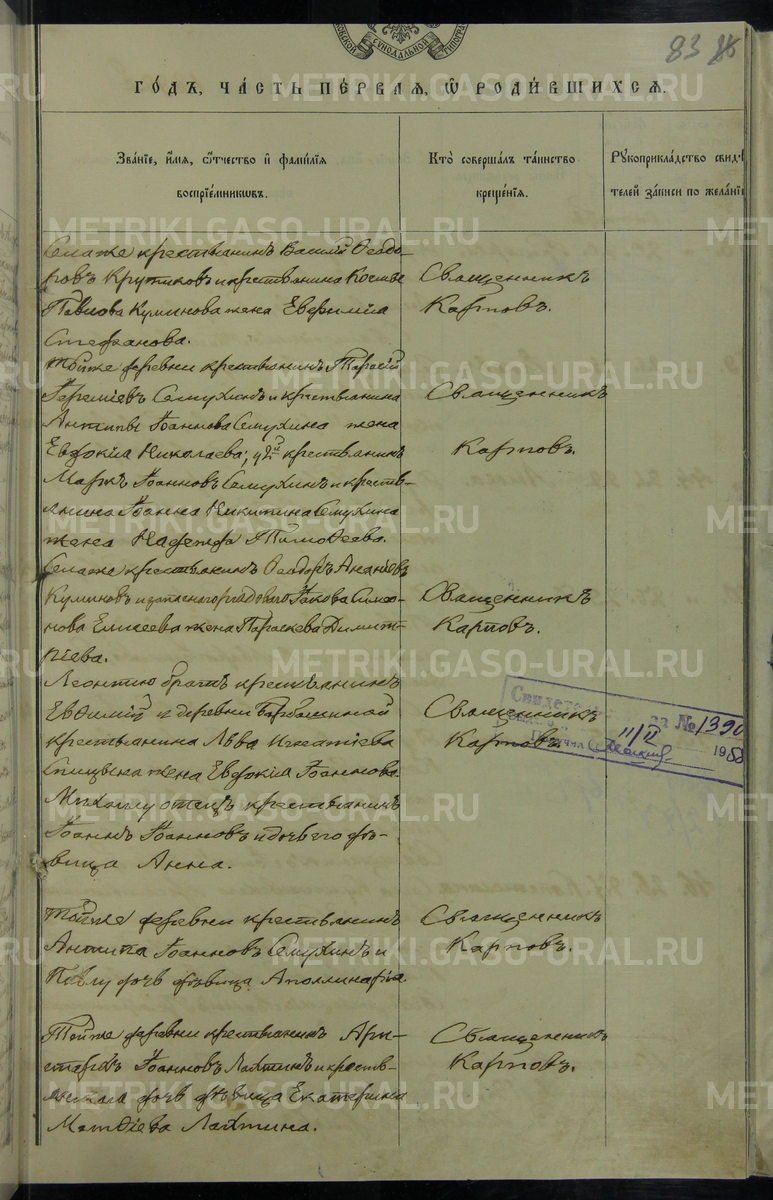 83
ГОДЪ, ЧАСТЬ ПЕРВАЯ, Ѡ РОДИВШИХСЯ.
Званіе, имя, отчество и фамилія воспріемниковъ.
Кто совершалъ таинство крещенія.
Рукоприкладство свидѣтелей записи по желанію
Села же крестьянинъ Василій Ѳеодо-
ровъ Крутиковъ и крестьянина Косьмы
Павлова Куминова жена Евфимія
Стефанова.
Священникъ
Карповъ.
Той же деревни крестьянинъ Тарасій
Іереміевъ Семухинъ и крестьянина
Антипы Іоаннова Семухина жена
Евдокія Николаева; у 2й крестьянинъ
Маркъ Іоанновъ Семухинъ и кресть-
янина Іоанна Никитина Семухина
жена Надежда Тимоѳеева.
Священникъ
Карповъ.
Села же крестьянинъ Ѳеодоръ Ананьевъ
Куминовъ и запаснаго рядоваго Іакова Симо-
нова Елисеева жена Параскева Димит-
ріева.
Священникъ
Карповъ.
Леонтію братъ крестьянинъ
Евѳимій и деревни Барбашиной
крестьянина Льва Игнатіева
Спицына жена Евдокія Іоаннова.
Священникъ
Карповъ.
за № 1390
11/II
Михаилу отецъ крестьянинъ
Іоаннъ Іоанновъ и дочь его дѣ-
вица Анна.
Той же деревни крестьянинъ
Антипа Іоанновъ Семухинъ и
Павлу дочь дѣвица Аполлинарія.
Священникъ
Карповъ.
Той же деревни крестьянинъ Ари-
стархъ Іоанновъ Лаптинъ и кресть-
дочь дѣвица Екатерина
Матѳіева Лаптина.
Священникъ
Карповъ.
METRIKI.GASO-URAL.RU